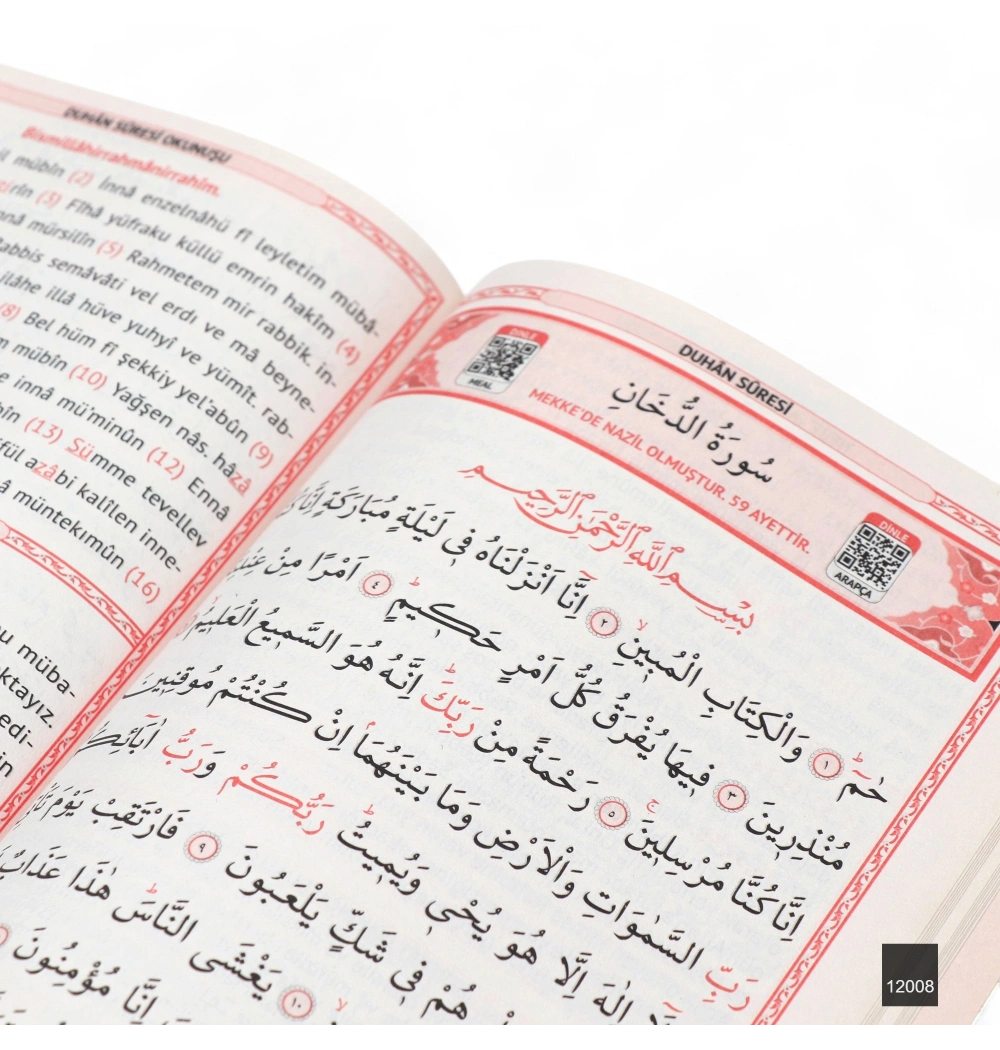 DUHÂN SÛRESİ OKUNUŞU
Bismillâhirrahmânirrahîm.
mübîn (2) İnnâ enzelnâhü fî leyletim mübâ-
(3) Fîhâ yüfraku küllü emrin hakîm (4)
mürsilîn (5) Rahmetem mir rabbik. in-
semâvâti vel erdı ve mâ beyne-
ilâhe illâ hüve yuhyî ve yümît. rab-
(8) Bel hüm fî şekkiy yel'abûn (9)
mübîn (10) Yağşen nâs, hâzâ
innâ mü'minûn (12) Ennâ
(13) Sümme tevellev
azâbi kalîlen inne-
müntekımûn (16)
müba-
DUHÂN SÛRESİ
DİNLE
MEAL
سُورَةُ الدُّخَانِ
MEKKE'DE NAZİL OLMUŞTUR. 59 AYETTİR.
DİNLE
ARAPÇA
بِسْمِ اللّٰهِ الرَّحْمٰنِ الرَّحِيمِ
حٰمٓ ۚ ﴿١﴾ وَالْكِتَابِ الْمُبِينِ ۙ ﴿٢﴾ اِنَّٓا اَنْزَلْنَاهُ فِي لَيْلَةٍ مُبَارَكَةٍ اِنَّا
مُنْذِرِينَ ﴿٣﴾ فِيهَا يُفْرَقُ كُلُّ اَمْرٍ حَكِيمٍ ۚ ﴿٤﴾ اَمْرًا مِنْ
اِنَّا كُنَّا مُرْسِلِينَ ۚ ﴿٥﴾ رَحْمَةً مِنْ رَبِّكَ ۜ اِنَّهُ هُوَ السَّمِيعُ الْعَلِيمُ
رَبِّ السَّمٰوَاتِ وَالْاَرْضِ وَمَا بَيْنَهُمَا اِنْ كُنْتُمْ مُوقِنِينَ
اِلٰهَ اِلَّا هُوَ يُحْيِ وَيُمِيتُ ۜ رَبُّكُمْ وَرَبُّ
هُمْ فِي شَكٍّ يَلْعَبُونَ ﴿٩﴾ فَارْتَقِبْ يَوْمَ
﴿١٠﴾ يَغْشَى النَّاسَ ۜ هٰذَا عَذَابٌ
اِنَّا مُؤْمِنُونَ
12008